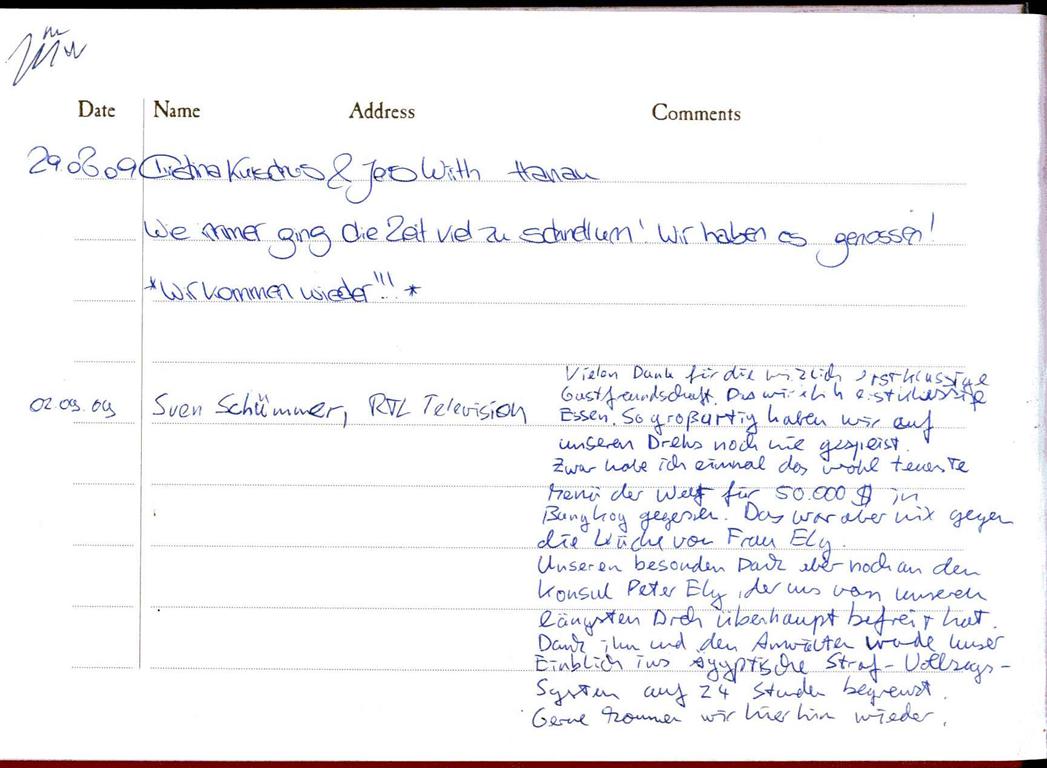 Date Name Address Comments
29.08.09 & Jens Wirth Hanau
Wie immer ging die Zeit viel zu schnell um! Wir haben es genossen!
*Wir kommen wieder!!! *
Vielen Dank für die wirklich erstklassige
Gastfreundschaft. Das wirklich erstklassige
02.09.09 Sven Schümmer, RTL Television Essen. So großartig haben wir auf
unseren Drehs noch nie gespeist.
Zwar habe ich einmal das wohl teuerste
Menü der Welt für 50.000 $ in
Bangkog gegessen. Das war aber nix gegen
die Küche von Frau Ely.
Unseren besonden Dank aber noch an den
Konsul Peter Ely, der uns vom unseren
längsten Dreh überhaupt befreit hat.
Dank ihm und den Anwälten wurde unser
Einblick ins ägyptische Straf-Vollzugs-
System auf 24 Stunden begrenzt.
Gerne kommen wir hierhin wieder.